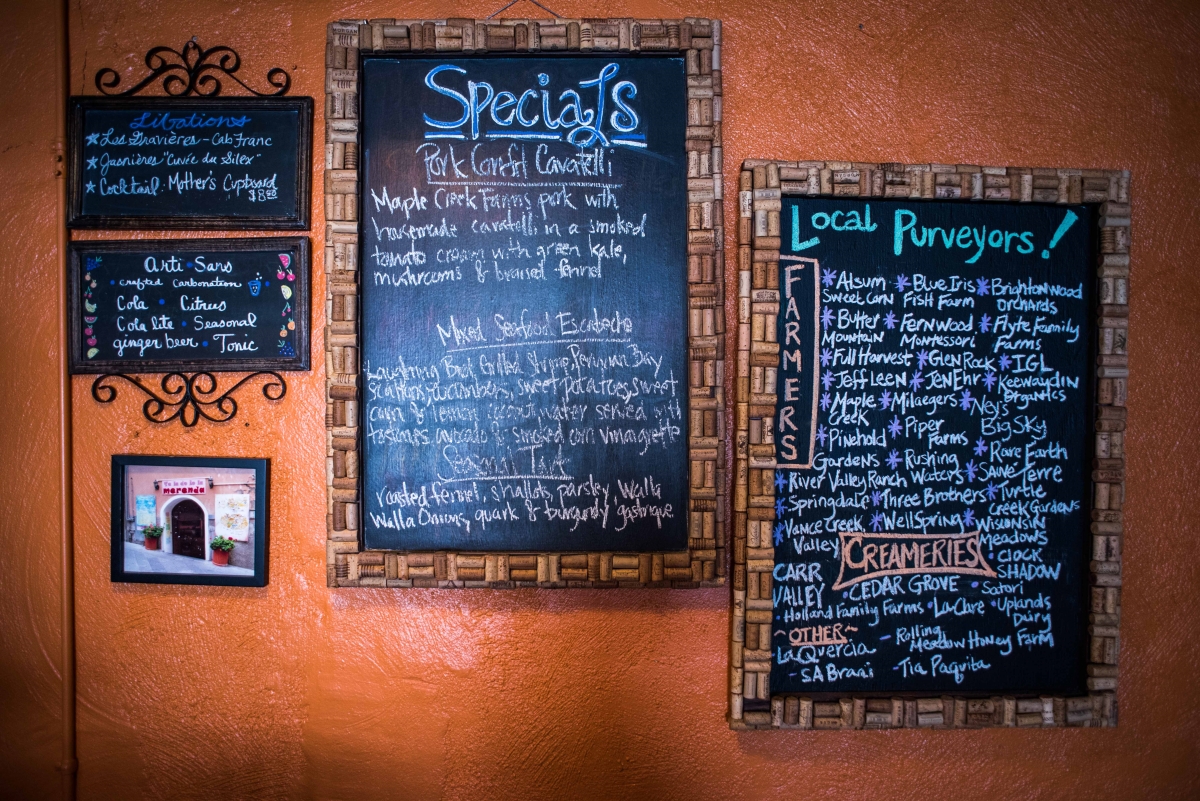 Libations
Les Gravières - Cab Franc
Jasnières "Cuvée du Silex"
Cocktail: Mother's Cupboard
$8.00
Arti • Sans
• crafted carbonation •
Cola • Citrus
Cola lite • Seasonal
ginger beer • Tonic
meranda
Specials
Pork Confit Cavatelli
Maple Creek Farms pork with
housemade cavatelli in a smoked
tomato cream with green kale,
mushrooms & braised fennel
Mixed Seafood Escabeche
Laughing Bird Grilled Shrimp, Peruvian Bay
Scallops, cucumbers, sweet potatoes, sweet
corn & lemon coconut water served with
tostones, avocado & smoked corn vinaigrette
Seasonal Tart
roasted fennel, shallots, parsley, Walla
Walla Onions, quark & burgundy gastrique.
Local Purveyors!
FARMERS
* Alsum * Blue Iris * Brightonwood
Sweet Corn Fish Farm Orchards
* Butter * Fernwood * Flyte Family
Mountain Montessori Farms
* Full Harvest * Glen Rock * IGL
* Jeff Leen * JenEhr * Keewaydin
Organics
* Maple * Milaegers * Ney's
Creek Big Sky
* Pinehold * Piper
Farms * Rare Earth
Gardens * Rushing * Sauve Terre
* River Valley Ranch Waters * Turtle
* Springdale * Three Brothers Creek Gardens
* Vance Creek * WellSpring * Wisconsin
Valley Meadows
CREAMERIES
• CLOCK
SHADOW
CARR
VALLEY • CEDAR GROVE • Satori
• Holland Family Farms • LaClare • Uplands
Dairy
~OTHER~
- Rolling
Meadow Honey Farm
LaQuercia
- SA Braai - Tia Paquita